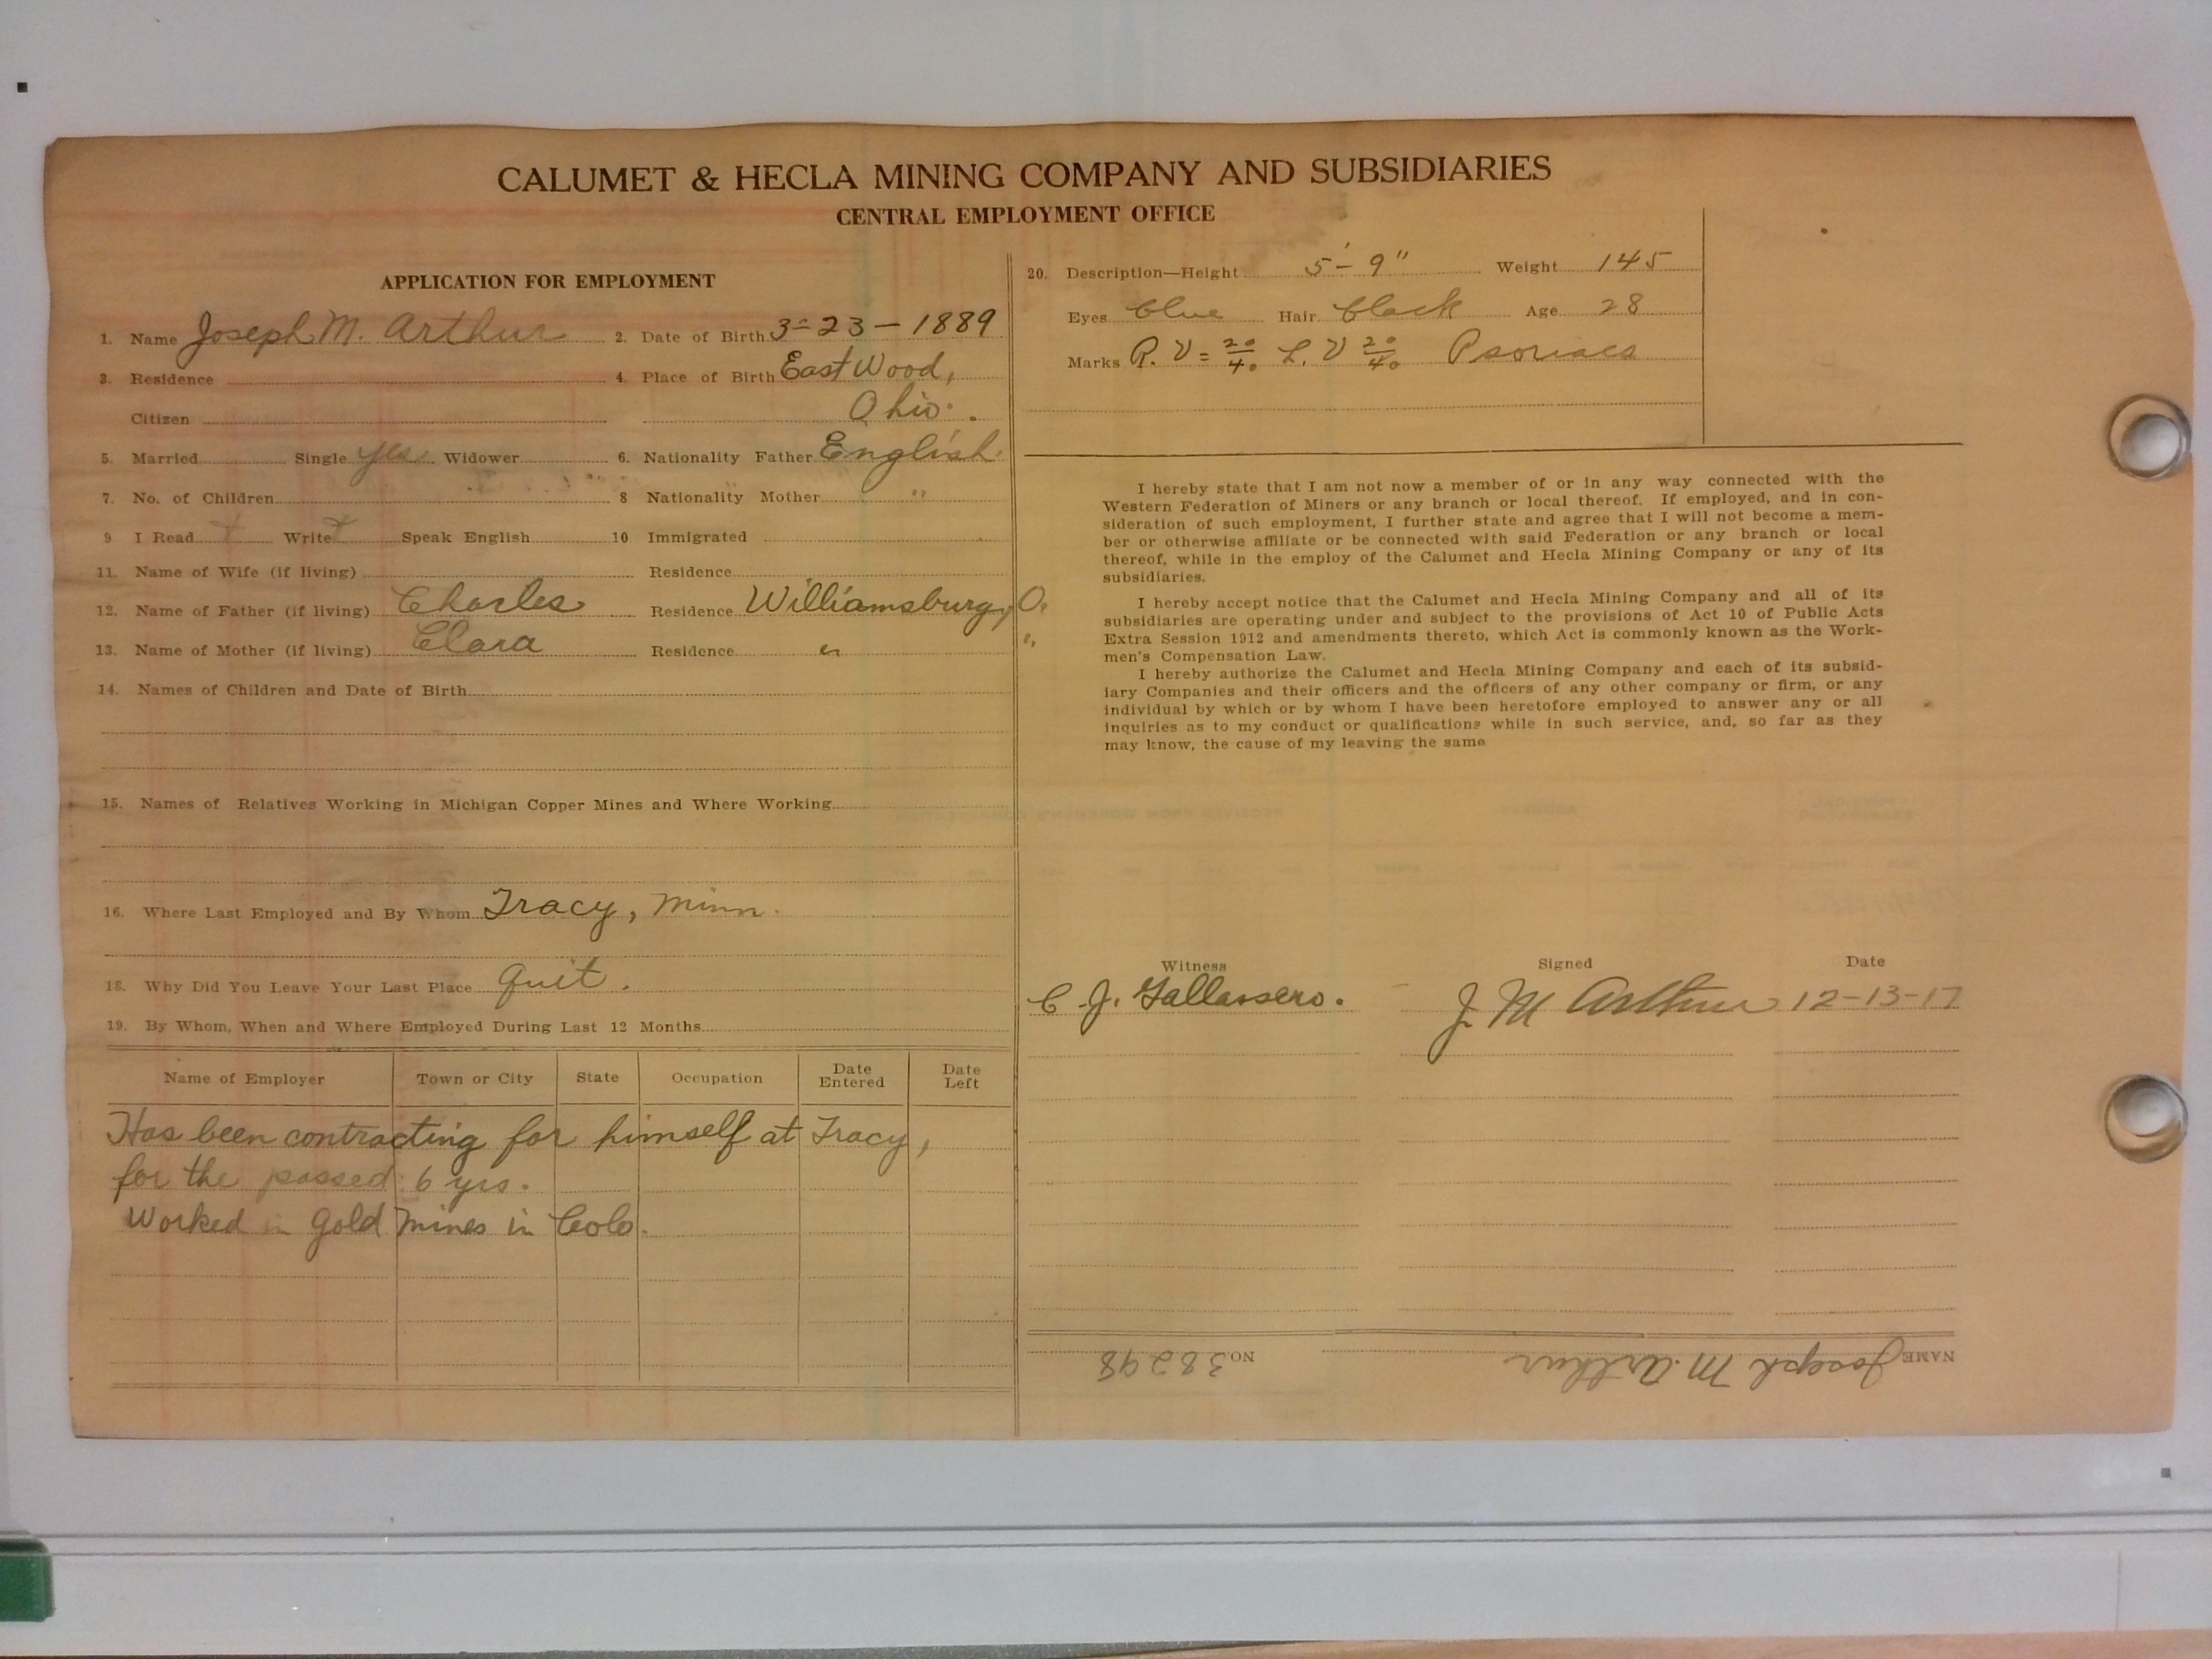 CALUMET & HECLA MINING COMPANY AND SUBSIDIARIES
CENTRAL EMPLOYMENT OFFICE
APPLICATION FOR EMPLOYMENT
1. Name Joseph M. Arthur 2. Date of Birth 3-23-1889
3. Residence 4. Place of Birth East Wood,
Citizen Ohio.
5. Married Single yes Widower 6. Nationality Father English
7. No. of Children 8 Nationality Mother "
9 I Read x Write x Speak English 10 Immigrated
11. Name of Wife (if living) Residence
12. Name of Father (if living) Charles Residence Williamsburg, O.
13. Name of Mother (if living) Clara Residence " "
14. Names of Children and Date of Birth
15. Names of Relatives Working in Michigan Copper Mines and Where Working
16. Where Last Employed and By Whom Tracy, Minn.
18. Why Did You Leave Your Last Place quit.
19. By Whom, When and Where Employed During Last 12 Months
Name of Employer Town or City State Occupation Date Entered Date Left
Has been contracting for himself at Tracy,
for the passed 6 yrs.
Worked in Gold Mines in Colo.
20. Description—Height 5'-9" Weight 145
Eyes blue Hair black Age 28
Marks R. V = 20/40 L. V 20/40
I hereby state that I am not now a member of or in any way connected with the
Western Federation of Miners or any branch or local thereof. If employed, and in con-
sideration of such employment, I further state and agree that I will not become a mem-
ber or otherwise affiliate or be connected with said Federation or any branch or local
thereof, while in the employ of the Calumet and Hecla Mining Company or any of its
subsidiaries.
I hereby accept notice that the Calumet and Hecla Mining Company and all of its
subsidiaries are operating under and subject to the provisions of Act 10 of Public Acts
Extra Session 1912 and amendments thereto, which Act is commonly known as the Work-
men's Compensation Law.
I hereby authorize the Calumet and Hecla Mining Company and each of its subsid-
iary Companies and their officers and the officers of any other company or firm, or any
individual by which or by whom I have been heretofore employed to answer any or all
inquiries as to my conduct or qualifications while in such service, and, so far as they
may know, the cause of my leaving the same
Witness Signed Date
C. J. J M Arthur 12-13-17
NAME Joseph M. Arthur NO. 38298